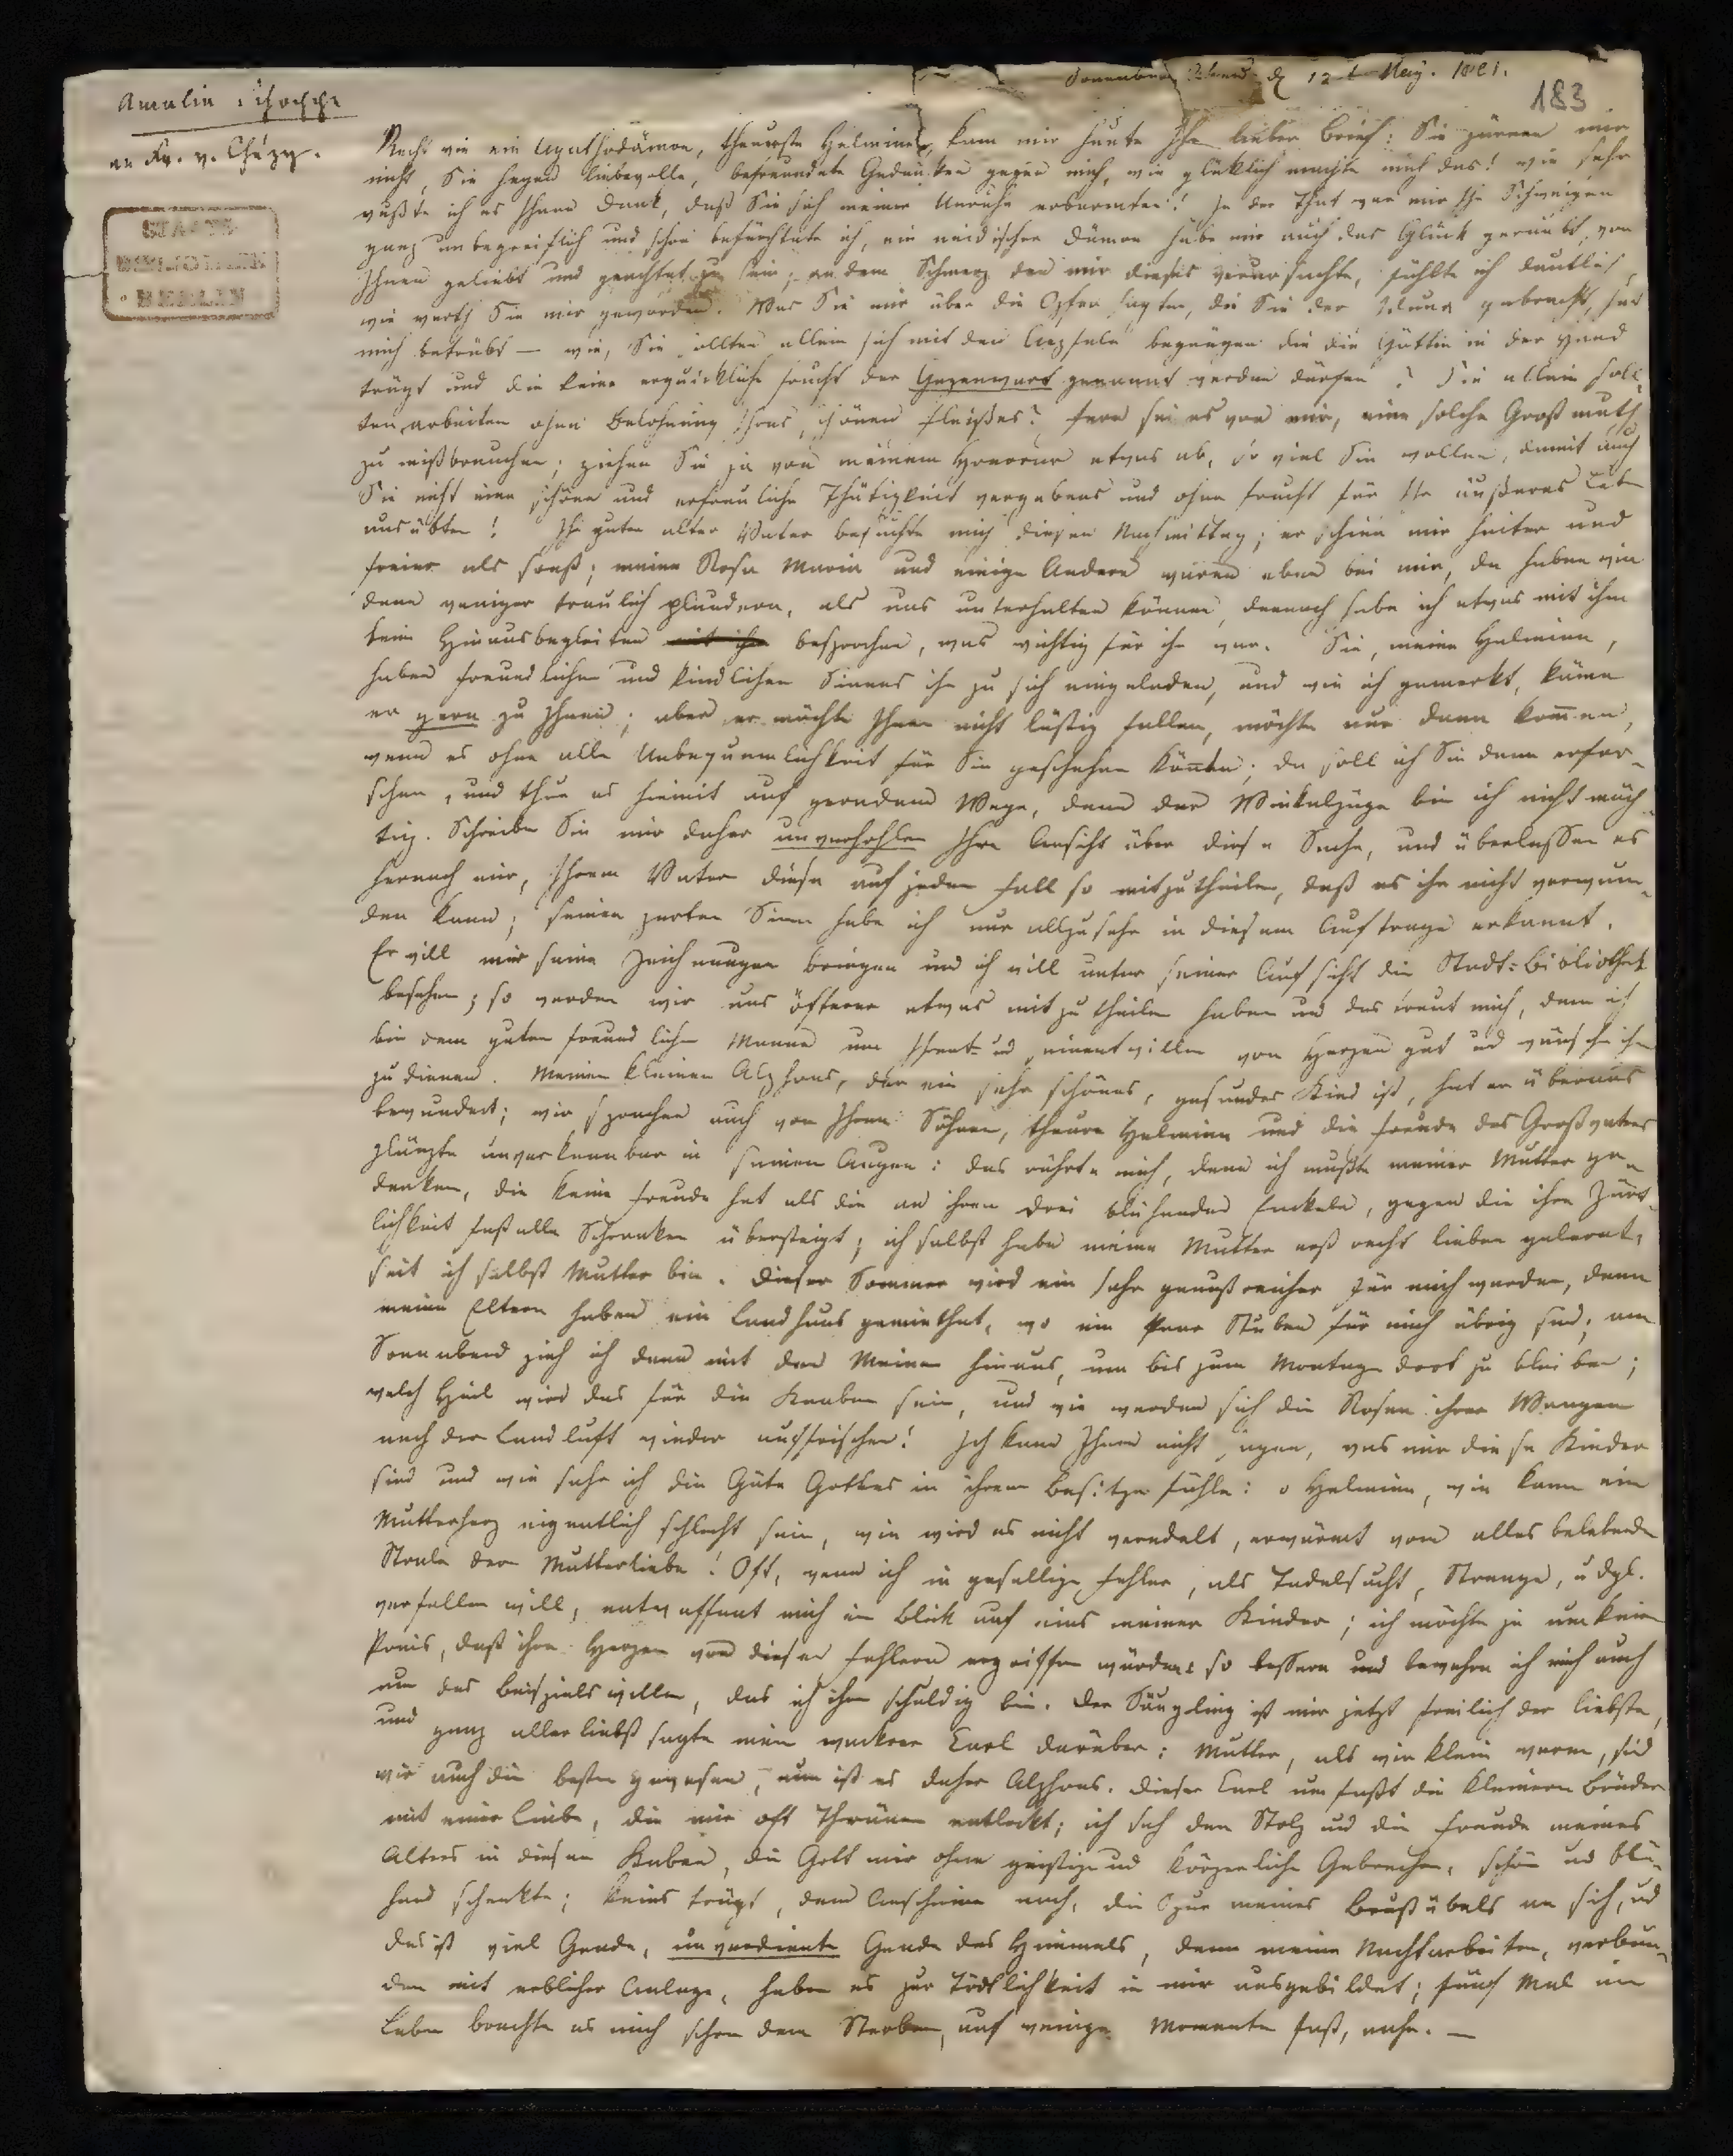 Amalia Schoppe
an Fr. v. Chézy.
STAATS
BIBLIOTHEK
BERLIN
Sonnabend Abend d 12 t May. 1821.
183
Recht wie ein Agathodämon, theuerste Helmina, kam mir heute Ihr lieber Brief: Sie zürnen mir
nicht, Sie hegen liebevolle, befreundete Gedanken gegen mich, wie glüklich machte mich das! wie sehr
wußte ich es Ihnen Dank, daß Sie sich meiner Unruhe erbarmten! In der That war mir Ihr Schweigen
ganz unbegreiflich und schon befürchtete ich, ein neidischer Dämon habe mir auch das Glück geraubt, von
Ihnen geliebt und geachtet zu sein; an dem Schmerz den mir dieses verursachte, fühlte ich deutlich,
wie werth Sie mir geworden. Was Sie mir über die Opfer sagten, die Sie der Iduna gebracht, hat
mich betrübt — wie, Sie sollten allein sich mit den Aepfeln begnügen die die Göttin in der Hand
trägt und die keine erquickliche Frucht der Gegenwart genannt werden dürfen? Sie allein soll-
ten arbeiten ohne Belohnung Ihres schönen Fleißes? Fern sei es von mir, eine solche Großmuth
zu mißbrauchen; ziehen Sie ja von meinem Honorar etwas ab, so viel Sie wollen, damit auch
Sie nicht eine schöne und erfreuliche Thätigkeit vergebens und ohne Frucht für Ihr äußeres Leben
ausübten! Ihr guter alter Vater besuchte mich diesen Nachmittag; er schien mir heiter und
freier als sonst; meine Rosa Maria und einige Andere waren eben bei mir, da haben wir
denn weniger traulich plaudern, als uns unterhalten können, dennoch habe ich etwas mit ihm
beim Hinausbegleiten besprochen, was wichtig für ihn war. Sie, meine Helmina,
haben freundlichen und kindlichen Sinnes ihn zu sich eingeladen, und wie ich gemerkt, käme
er gern zu Ihnen; aber er möchte Ihnen nicht lästig fallen, möchte nur dann kommen,
wenn es ohne alle Unbequemlichkeit für Sie geschehen könnte; da soll ich Sie denn erfor-
schen, und thue es hiemit auf geradem Wege, denn der Winkelzüge bin ich nicht mäch-
tig. Schreiben Sie mir daher unverhohlen Ihre Ansicht über diese Sache, und überlassen es
hernach mir, Ihrem Vater diese auf jeden Fall so mitzutheilen, daß es ihn nicht verwun-
den kann; seinen zarten Sinn habe ich nur allzusehr in diesem Auftrage erkannt.
Er will mir seine Zeichnungen bringen und ich will unter seiner Aufsicht die Stadt-Bibliothek
besehen; so werden wir uns öfterer etwas mitzutheilen haben und das freut mich, denn ich
bin dem guten freundlichen Manne um Ihret- und seinentwillen von Herzen gut und wünsche ihm
zu dienen. Meinen kleinen Alphons, der ein sehr schönes, gesundes Kind ist, hat er überaus
bewundert; wir sprachen auch von Ihren Söhnen, theure Helmina und die Freude des Großvaters
glänzte unverkennbar in seinen Augen: das rührte mich, denn ich mußte meiner Mutter ge-
denken, die keine Freude hat als die an ihren drei blühenden Enkeln, gegen die ihre Zärt-
lichkeit fast alle Schranken übersteigt; ich selbst habe meine Mutter erst recht lieben gelernt,
seit ich selbst Mutter bin. Dieser Sommer wird ein sehr genußreicher für mich werden, denn
meine Eltern haben ein Landhaus gemiethet, wo ein Paar Stuben für mich übrig sind; am
Sonnabend zieh ich dann mit den Meinen hinaus, um bis zum Montage dort zu bleiben;
welch Heil wird das für die Knaben sein, und wie werden sich die Rosen ihrer Wangen
nach der Landluft wieder auffrischen! Ich kann Ihnen nicht sagen, was mir diese Kinder
sind und wie sehr ich die Güte Gottes in ihrem Besitze fühle: o Helmina, wie kann ein
Mutterherz eigentlich schlecht sein, wie wird es nicht veredelt, erwärmt vom alles belebenden
Strale der Mutterliebe! Oft, wenn ich in gesellige Fehler, als Tadelsucht, Strenge, u dgl.
verfallen will, entwaffnet mich ein Blick auf eins meiner Kinder; ich möchte ja um keinen
Preis, daß ihre Herzen von diesen Fehlern ergriffen würden: so bessere und bewahre ich mich auch
um des Beispiels willen, das ich ihnen schuldig bin. Der Säugling ist mir jetzt freilich der liebste,
und ganz allerliebst sagte mein wackerer Carl darüber: Mutter, als wir klein waren, sind
wir auch die besten gewesen, nun ist es daher Alphons. Dieser Carl umfaßt die kleinern Brüder
mit einer Liebe, die mir oft Thränen entlockt; ich seh den Stolz und die Freude meines
Alters in diesen Knaben, die Gott mir ohne geistige und körperliche Gebrechen, schön und blü-
hend schenkte; keins trägt, dem Anscheine nach, die Spur meines Brustübels an sich, und
das ist viel Gnade, unverdiente Gnade des Himmels, denn meine Nachtarbeiten, verbun-
den mit erblicher Anlage, haben es zur Tödtlichkeit in mir ausgebildet; fünf Mal im
Leben brachte es mich schon dem Sterben, auf wenige Momente fast, nahe. —